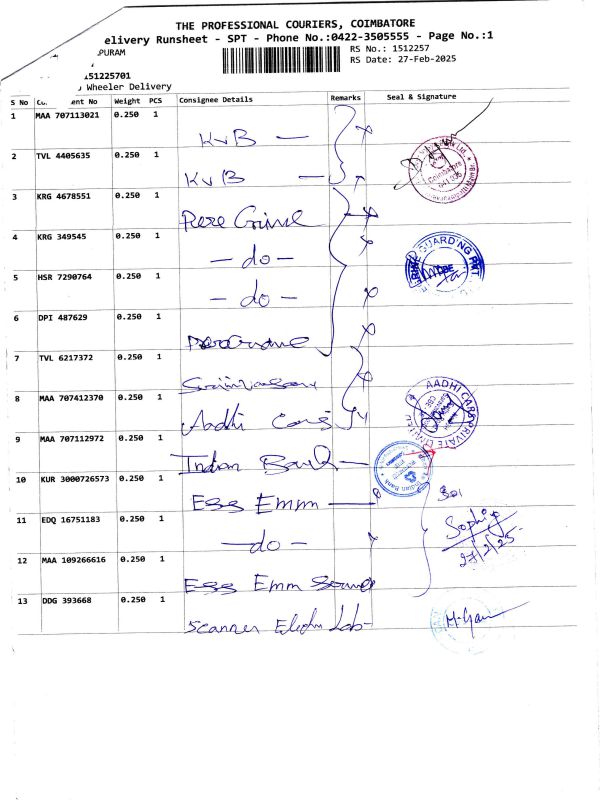 THE PROFESSIONAL COURIERS, COIMBATORE
elivery Runsheet - SPT - Phone No.:0422-3505555 - Page No.:1
PURAM
RS No.: 1512257
RS Date: 27-Feb-2025
151225701
Wheeler Delivery
S No ent No Weight PCS Consignee Details Remarks Seal & Signature
1 MAA 707113021 0.250 1 KvB —
2 TVL 4405635 0.250 1 KvB —
3 KRG 4678551 0.250 1
4 KRG 349545 0.250 1 — do —
5 HSR 7290764 0.250 1 — do —
6 DPI 487629 0.250 1
7 TVL 6217372 0.250 1
8 MAA 707412370 0.250 1 Aadhi Cars
9 MAA 707112972 0.250 1 Indian Bank —
10 KUR 3000726573 0.250 1 Ess Emm —
11 EDQ 16751183 0.250 1 — do —
12 MAA 109266616 0.250 1 Ess Emm
13 DDG 393668 0.250 1 Scanner Lab-
Coimbatore
AADHI CARS PRIVATE LIMITED
Indian Bank
Sophiya
27/2/25